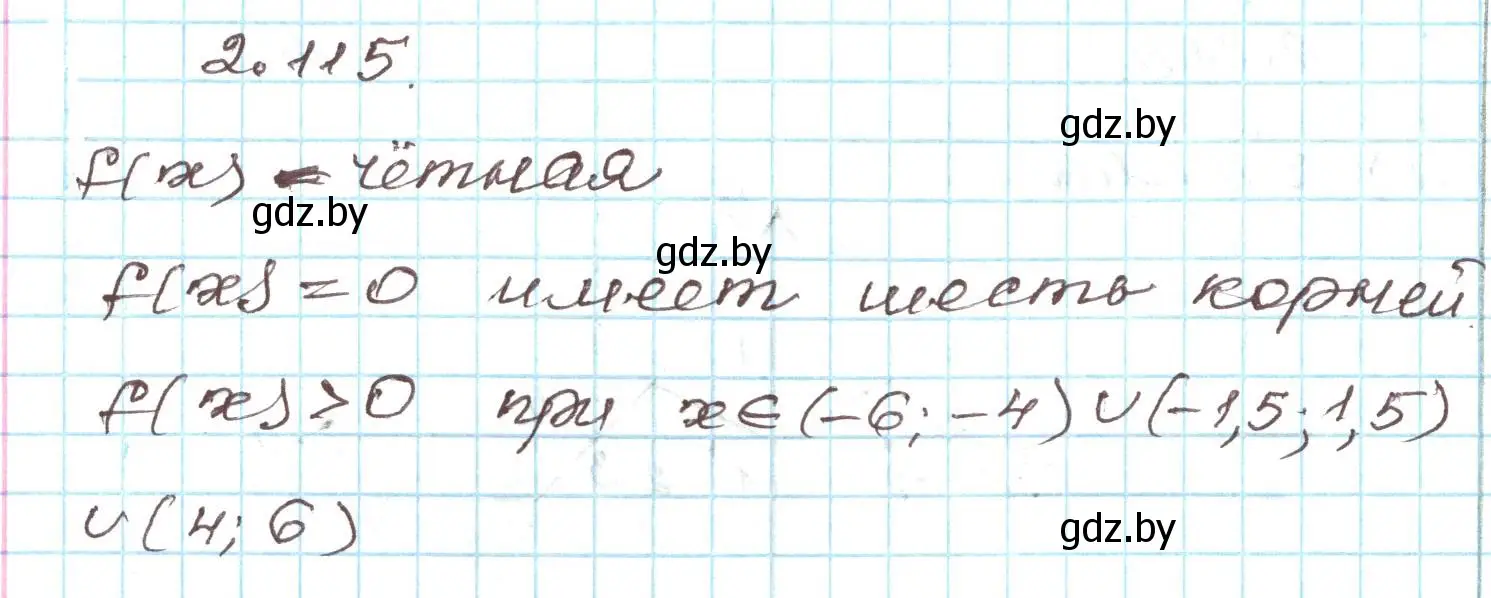 2.115.
gdz.by
f(x) – чётная
gdz.by
gdz.by
f(x) = 0 имеет шесть корней.
f(x) > 0 при x ∈ (-6; -4) ∪ (-1,5; 1,5)
∪ (4; 6)
gdz.by